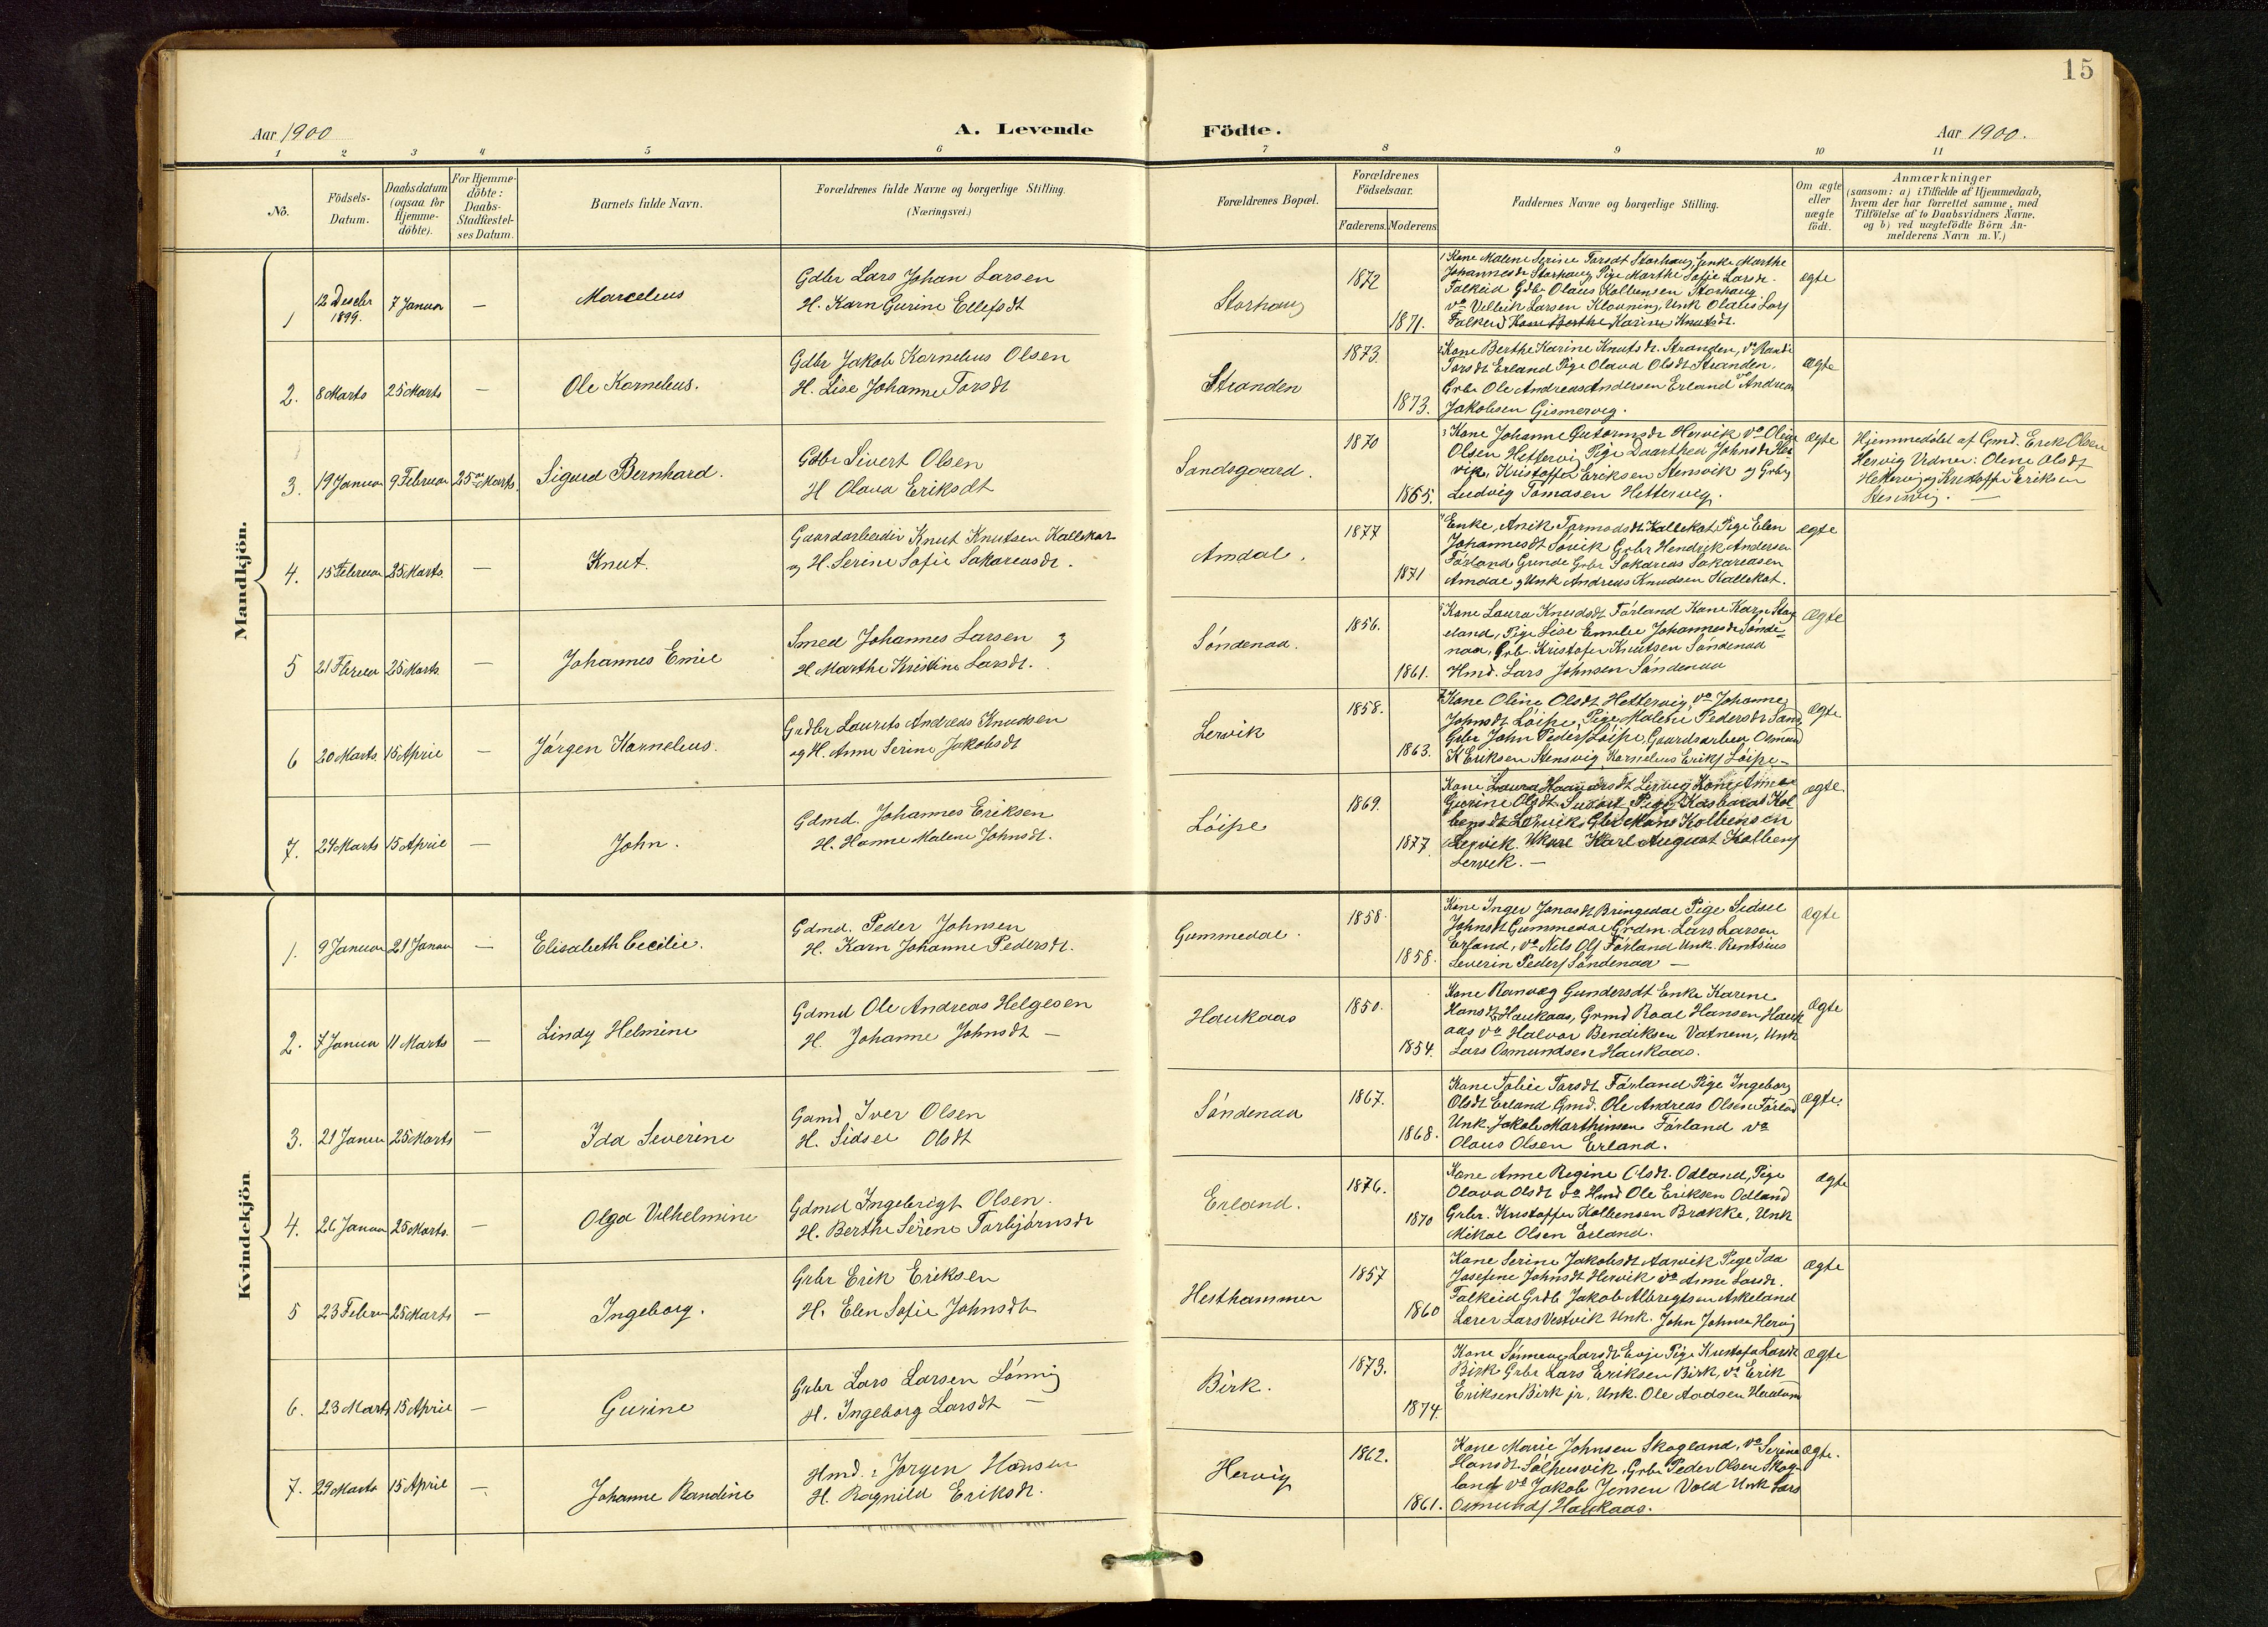 15
Aar 1900
A. Levende
Födte.
Aar 1900.
1 2 3 4 5 6 7 8 9 10 11
No.
Födsels-
Datum.
Daabsdatum
(ogsaa for
Hjemme-
döbte).
For Hjemme-
döbte:
Daabs-
Stadfæstel-
ses Datum.
Barnets fulde Navn.
Forældrenes fulde Navne og borgerlige Stilling.
(Næringsvei.)
Forældrenes Bopæl.
Forældrenes
Födselsaar.
Faderens. Moderens.
Faddernes Navne og borgerlige Stilling.
Om ægte
eller
uægte
født.
Anmærkninger
(saasom: a) i Tilfælde af Hjemmedaab,
hvem der har forrettet samme, med
Tilföielse af to Daabsvidners Navne.
og b) ved uægtefödte Börn An-
melderens Navn m. V.)
Mandkjön.
1
12 Desebr
1899.
7 Januar
—
Marcelius
Gdbr Lars Johan Larsen
H. Karn Gurine Ellefsdt
Storhaug
1872
1871.
Kone Malene Serine Torsdt Storhaug, Enke Marthe
Johannesdr Storhaug Pige Marthe Sofie Larsdr.
Falkeid Gdbr Olaus Kolbensen Storhaug
vo Villeik Larsen Klovning, Unk Olaus Lars
Falkeid Kone Berthe Karine Knutsdt.
ægte
2.
8 Marts
25 Marts
—
Ole Kornelius.
Gdbr Jakob Kornelius Olsen
H. Lise Johanne Torsdt
Stranden
1873.
1873.
Kone Berthe Karine Knutsdr. Stranden, vo Randi
Torsdt Erland Pige Olava Olsdt Stranden,
Grbr Ole Andreas Andersen Erland vo Andreas
Jakobsen Gismervig.
Ægte
3.
19 Januar
9 Februar
25 Marts.
Sigurd Bernhard.
Gdbr Sivert Olsen
H Olava Eriksdt
Sandsgaard.
1870
1865.
Kone Johanne Gutormsdr Hervik vo Oline
Olsen Hettervi, Pige Daarthea Johnsdt Her
vik, Kristoffer Eriksen Stensvik og Grbr
Ludvig Tomasen Hettervig.
ægte
Hjemmedöbt af Gmd. Erik Olsen
Hervig Vidner: Oline Olsdt
Hettervig og Kristoffer Eriksen
Stensvig. —
4.
15 Februar
25 Marts.
—
Knut.
Gaardarbeider Knut Knutsen Kallekot
og H. Serine Sofie Sakareasdr.
Amdal.
1877
1871
Enke, Anik Tormodsdt Kallekot, Pige Elen
Johannesdt Søvik Grbr Hendrik Andersen
Førland Grinde Grbr Sakareas Sakareasen
Amdal og Unk Andreas Knudsen Kallekot.
ægte
5
21 Februar
25 Marts.
—
Johannes Emil
Smed Johannes Larsen
H. Marthe Kristine Larsdt.
Søndenaa.
1856.
1861.
Kone Laura Knudsdt Førland Kone Karn Stag
eland, Pige Lise Emilie Johannesdr Sønde-
naa, Grb. Kristofer Knutsen Søndenaa
Hmd. Lars Johnsen Søndenaa
Ægte
6
20 Marts.
15 April
—
Jørgen Kornelius.
Grdbr Laurits Andreas Knudsen
og H. Anne Serine Jakobsdt
Lervik
1858.
1863.
Kone Oline Olsdt Hettervig, vo Johanne
Johnsdt Løipe, Pige Malene Pedersdt Sand
Grbr John Peders Løipe, Gaardsarbeider Osmund
K Eriksen Stensvig, Kornelius Eriks Løipe —
Ægte
7.
24 Marts
15 April
—
John.
Gdmd. Johannes Eriksen
H. Hanne Malene Johnsdt.
Løipe
1869.
1877.
Kone Laura
Gurine Olsdt Pige Kol-
bensdt Lervik, Gbr Mons Kolbensen
Lervik. Karl August Kolbens
Lervik. —
ægte
Kvindekjön
1.
9 Januar
21 Januar
—
Elisabeth Cecilie.
Gdmd. Peder Johnsen
H. Karn Johanne Pedersdt.
Gummedal.
1858.
1858.
Kone Inger Jonasdt Bringedal Pige Sidsel
Johnsdt Gummedal Grdm. Lars Larsen
Erland, vo Nils Ols Førland Unk. Rentsius
Severin Peders Søndenaa —
Ægte
2.
7 Januar
11 Marts
—
Lindy Helmine
Gdmd Ole Andreas Helgesen
H. Johanne Johnsdt —
Haukaas
1850.
1854.
Kone Ranvæg Gundersdt Enke Karine
Hansdt Haukaas, Grmd Roal Hansen Hauk
aas vo Halvor Bendiksen Vatnem, Unk
Lars Osmundsen Haukaas.
Ægte
3.
21 Januar
25 Marts
—
Ida Severine
Gamd Iver Olsen
H. Sidsel Olsdt
Søndenaa
1867.
1868.
Kone Tolie Torsdt Førland Pige Ingeborg
Olsdt Erland, Gmd. Ole Andreas Olsen Førland
Unk. Jakob Marthinsen Førland vo
Olaus Olsen Erland.
ægte.
4.
26 Januar
25 Marts.
—
Olga Vilhelmine
Gdmd Ingebrigt Olsen.
H. Berthe Serine Torbjørnsdr
Erland.
1876.
1870
Kone Anne Regine Olsdt. Odland, Pige
Olava Olsdt vo Hmd Ole Eriksen Odland
Grbr. Kristoffer Kolbensen Brække, Unk
Mikal Olsen Erland.
ægte
5
23 Februar
25 Marts
—
Ingeborg.
Grbr Erik Eriksen
H. Elen Sofie Johnsdt
Hesthammer
1857
1860
Kone Serine Jakobsdt Aarvik Pige Ida
Josefine Johnsdt Hervik vo Anne Larsdr.
Falkeid Grdb. Jakob Albregtsen Askeland
Lærer Lars Vestvik Unk. John Johnsen Hervig
Ægte
6.
23 Marts
15 April
—
Gurine
Grbr Lars Larsen Lønnig
H. Ingeborg Larsdt —
Birk.
1873.
1874.
Kone Sønneva Larsdt Evje Pige Kristofa Larsdt
Birk Grbr Lars Eriksen Birk, vo Erik
Eriksen Birk jr, Unk. Ole Aadsen
Ægte
7.
29 Marts
15 April
—
Johanne Randine
Hmd. Jørgen Hansen
H. Ragnild Eriksdt.
Hervig
1862.
1861.
Kone Marie Johnsen Skogland, vo Serine
Hansdt , Grbr Peder Olsen Skog-
land vo Jakob Jensen Vold Unk Lars
Osmunds Haukaas.
Ægte.